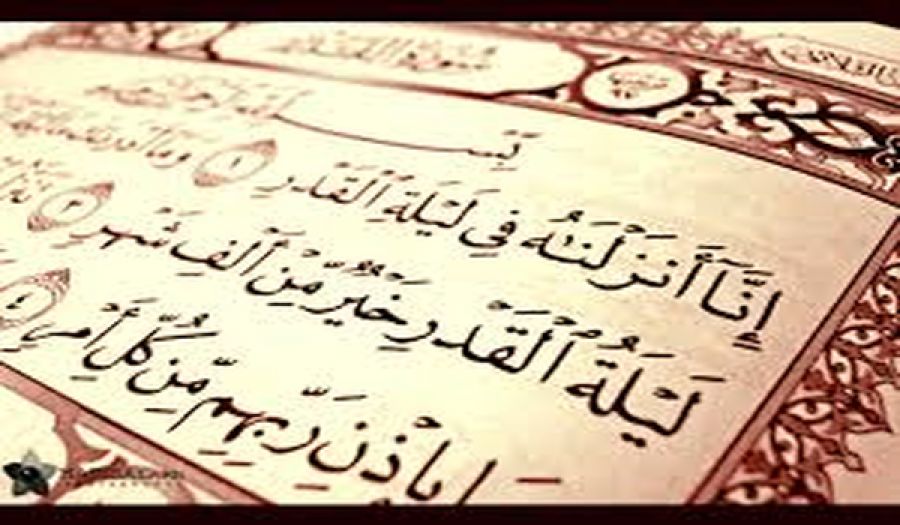 سورة القدر
بِسْمِ ٱللَّهِ ٱلرَّحْمَٰنِ ٱلرَّحِيمِ
إِنَّآ أَنزَلْنَٰهُ فِى لَيْلَةِ ٱلْقَدْرِ ١ وَمَآ أَدْرَىٰكَ
لَيْلَةُ ٱلْقَدْرِ خَيْرٌ مِّنْ أَلْفِ شَهْرٍ ٣
بِإِذْنِ رَبِّهِم مِّن كُلِّ أَمْرٍ ٤